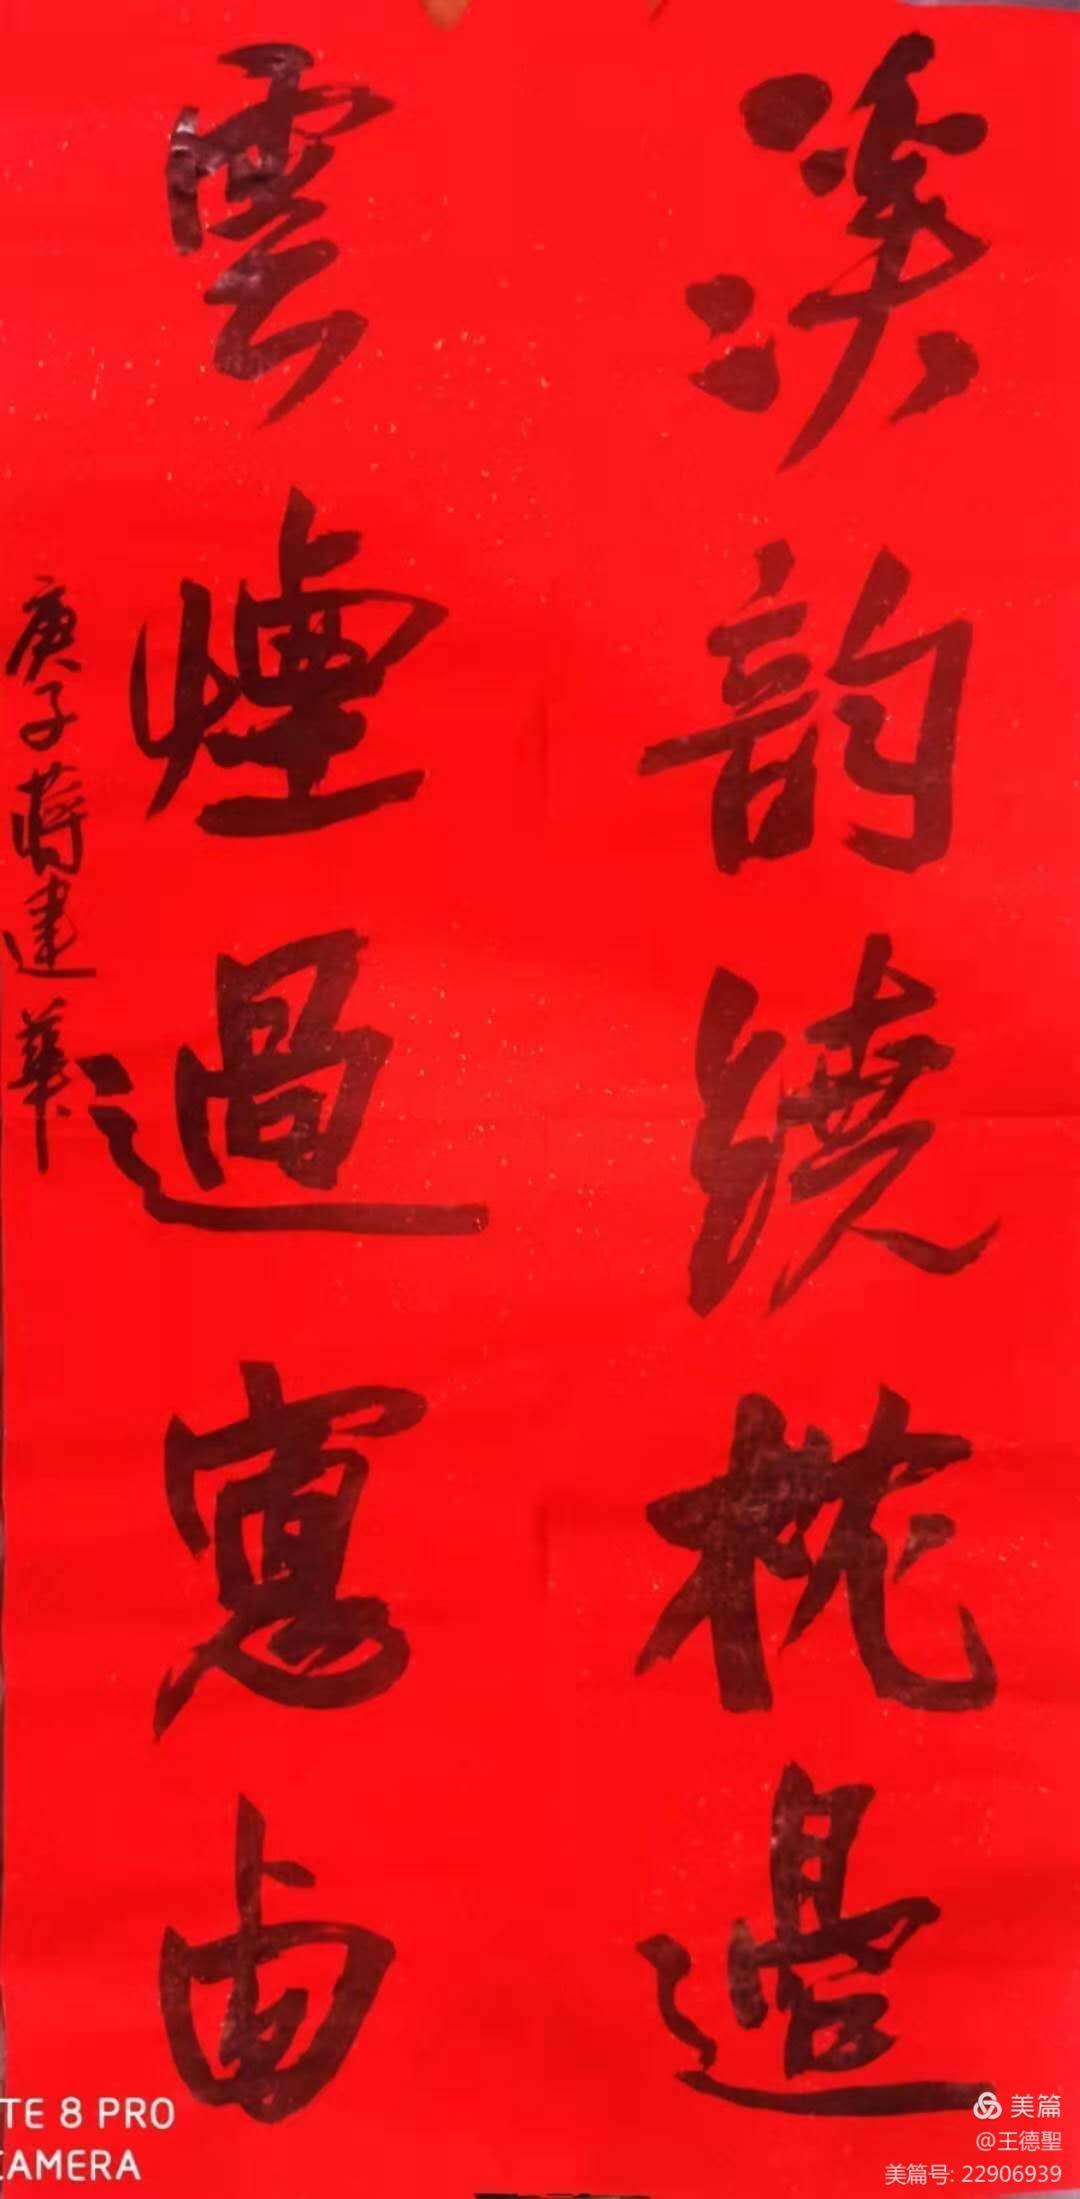 溪韵繞枕邊
雲煙過窻
庚子蒋建華
TE 8 PRO
CAMERA
美篇
@王德聖
美篇号: 22906939